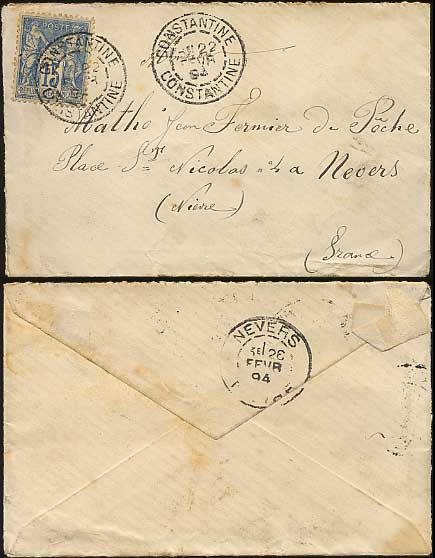 POSTE
CONSTANTINE
CONSTANTINE
CONSTANTINE
22
FEVR
94
CONSTANTINE
Mathe Jean Fermier de Pêche
Place St Nicolas n° 4 a Nevers
(Nièvre)
(France)
NEVERS
26
FEVR
94